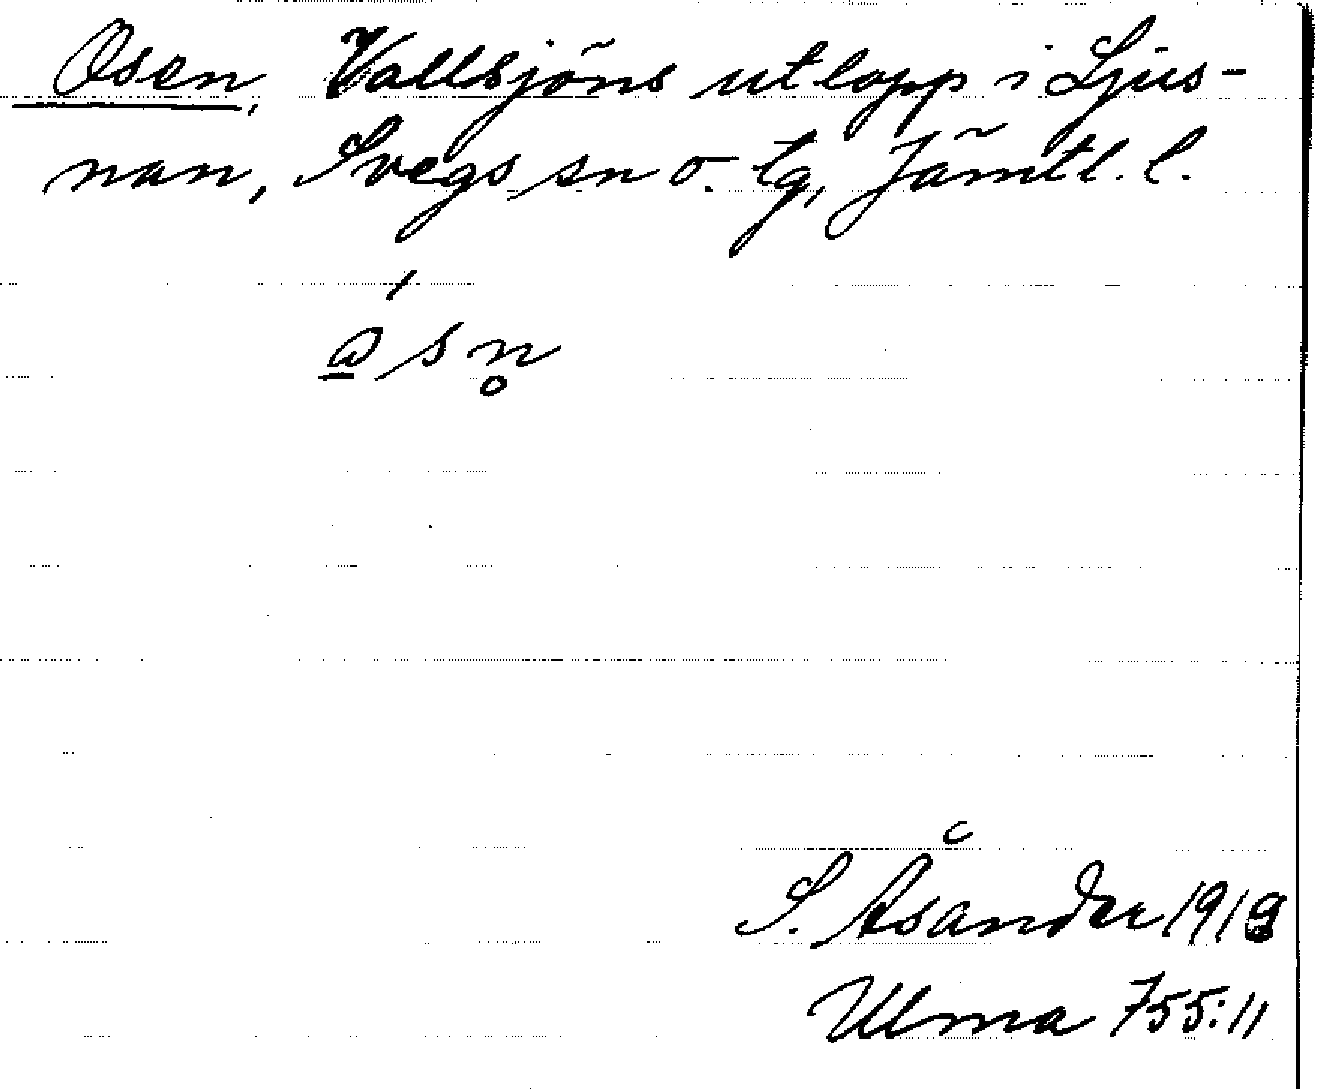 Osen, Vallsjöns utlopp i Ljus-
nan, Svegs sn o. tg, Jämtl. l.
S. Åsander 1918
Ulma 755:11